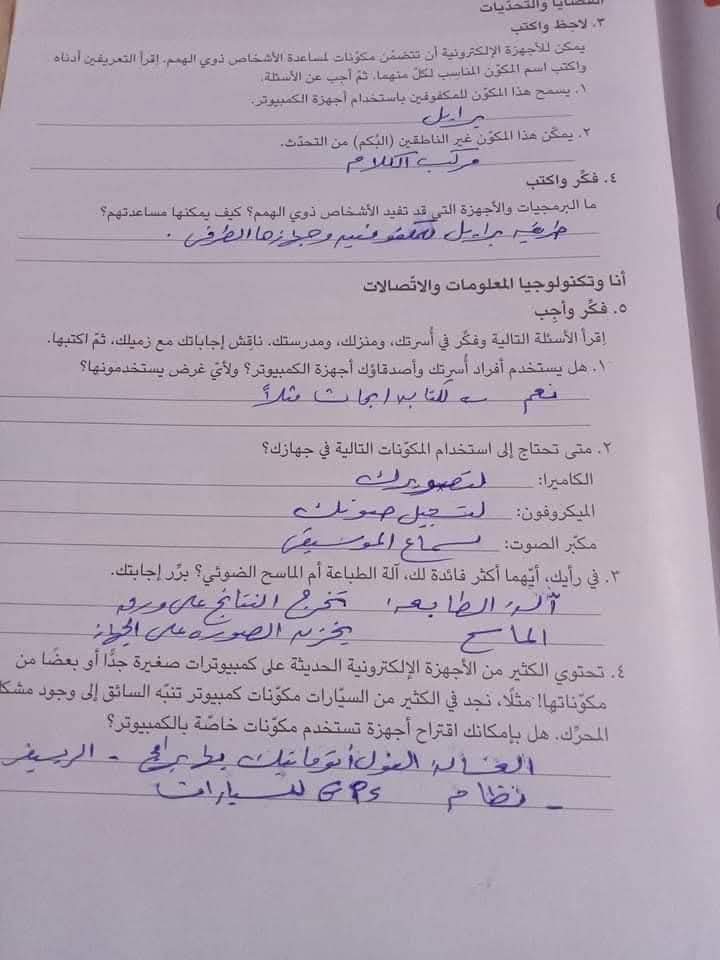 القضايا والتحدّيات
٣. لاحِظ واكتب
يمكن للأجهزة الإلكترونية أن تتضمّن مكوّنات لمساعدة الأشخاص ذوي الهمم. اِقرأ التعريفين أدناه
واكتب اسم المكوّن المناسب لكلّ منهما. ثمّ أجب عن الأسئلة.
١. يسمح هذا المكوّن للمكفوفين باستخدام أجهزة الكمبيوتر.
برايل
٢. يمكّن هذا المكوّن غير الناطقين (البُكم) من التحدّث.
مركب الكلام
٤. فكِّر واكتب
ما البرمجيات والأجهزة التي قد تفيد الأشخاص ذوي الهمم؟ كيف يمكنها مساعدتهم؟
طريقة برايل للمكفوفين وجهازها الطرفي .
أنا وتكنولوجيا المعلومات والاتّصالات
٥. فكِّر وأجِب
اِقرأ الأسئلة التالية وفكِّر في أسرتك، ومنزلك، ومدرستك. ناقِش إجاباتك مع زميلك، ثمّ اكتبها.
١. هل يستخدم أفراد أسرتك وأصدقاؤك أجهزة الكمبيوتر؟ ولأيّ غرض يستخدمونها؟
نعم لكتابة ابحاث مثلاً
٢. متى تحتاج إلى استخدام المكوّنات التالية في جهازك؟
الكاميرا: لتصويرك
الميكروفون: لتسجيل صوتك
مكبّر الصوت: لسماع الموسيقى
٣. في رأيك، أيّهما أكثر فائدة لك، آلة الطباعة أم الماسح الضوئي؟ برِّر إجابتك.
آلة الطابعة تخرج النتائج على ورق
الماسح يخزن الصورة على الجهاز
٤. تحتوي الكثير من الأجهزة الإلكترونية الحديثة على كمبيوترات صغيرة جدًّا أو بعضًا من
مكوّناتها! مثلًا، نجد في الكثير من السيّارات مكوّنات كمبيوتر تنبّه السائق إلى وجود مشكلة
المحرّك. هل بإمكانك اقتراح أجهزة تستخدم مكوّنات خاصّة بالكمبيوتر؟
الغسالة الفول أتوماتيك ببرامج - الريسيفر
- نظام GPS للسيارات